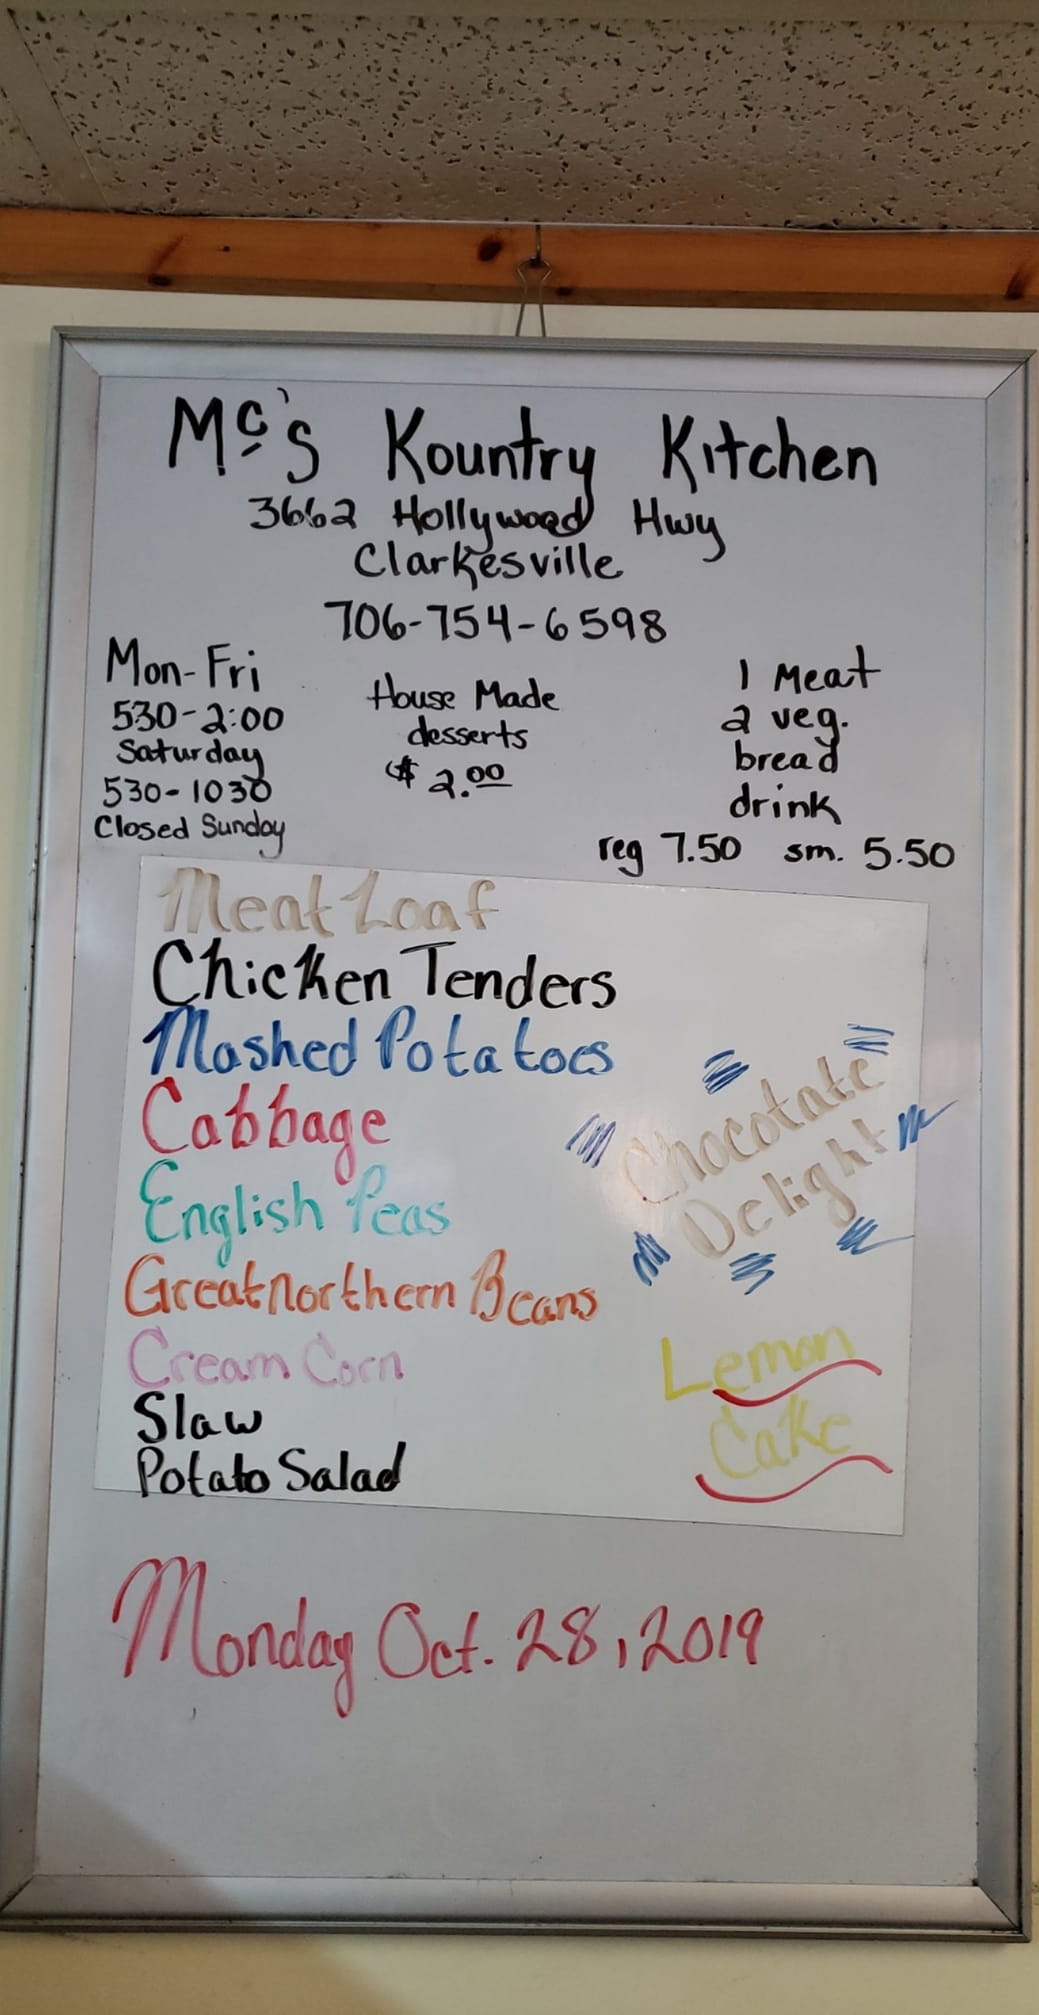 Mc's Kountry Kitchen
3662 Hollywood Hwy
Clarkesville
706-754-6598
Mon-Fri
530-2:00
Saturday
530-1030
Closed Sunday
House Made
desserts
$ 2.00
1 Meat
2 veg.
bread
drink
reg 7.50 sm. 5.50
Meat Loaf
Chicken Tenders
Mashed Potatoes
Cabbage
English Peas
Greatnorthern Beans
Cream Corn
Slaw
Potato Salad
Chocolate
Delight
Lemon
Cake
Monday Oct. 28, 2019